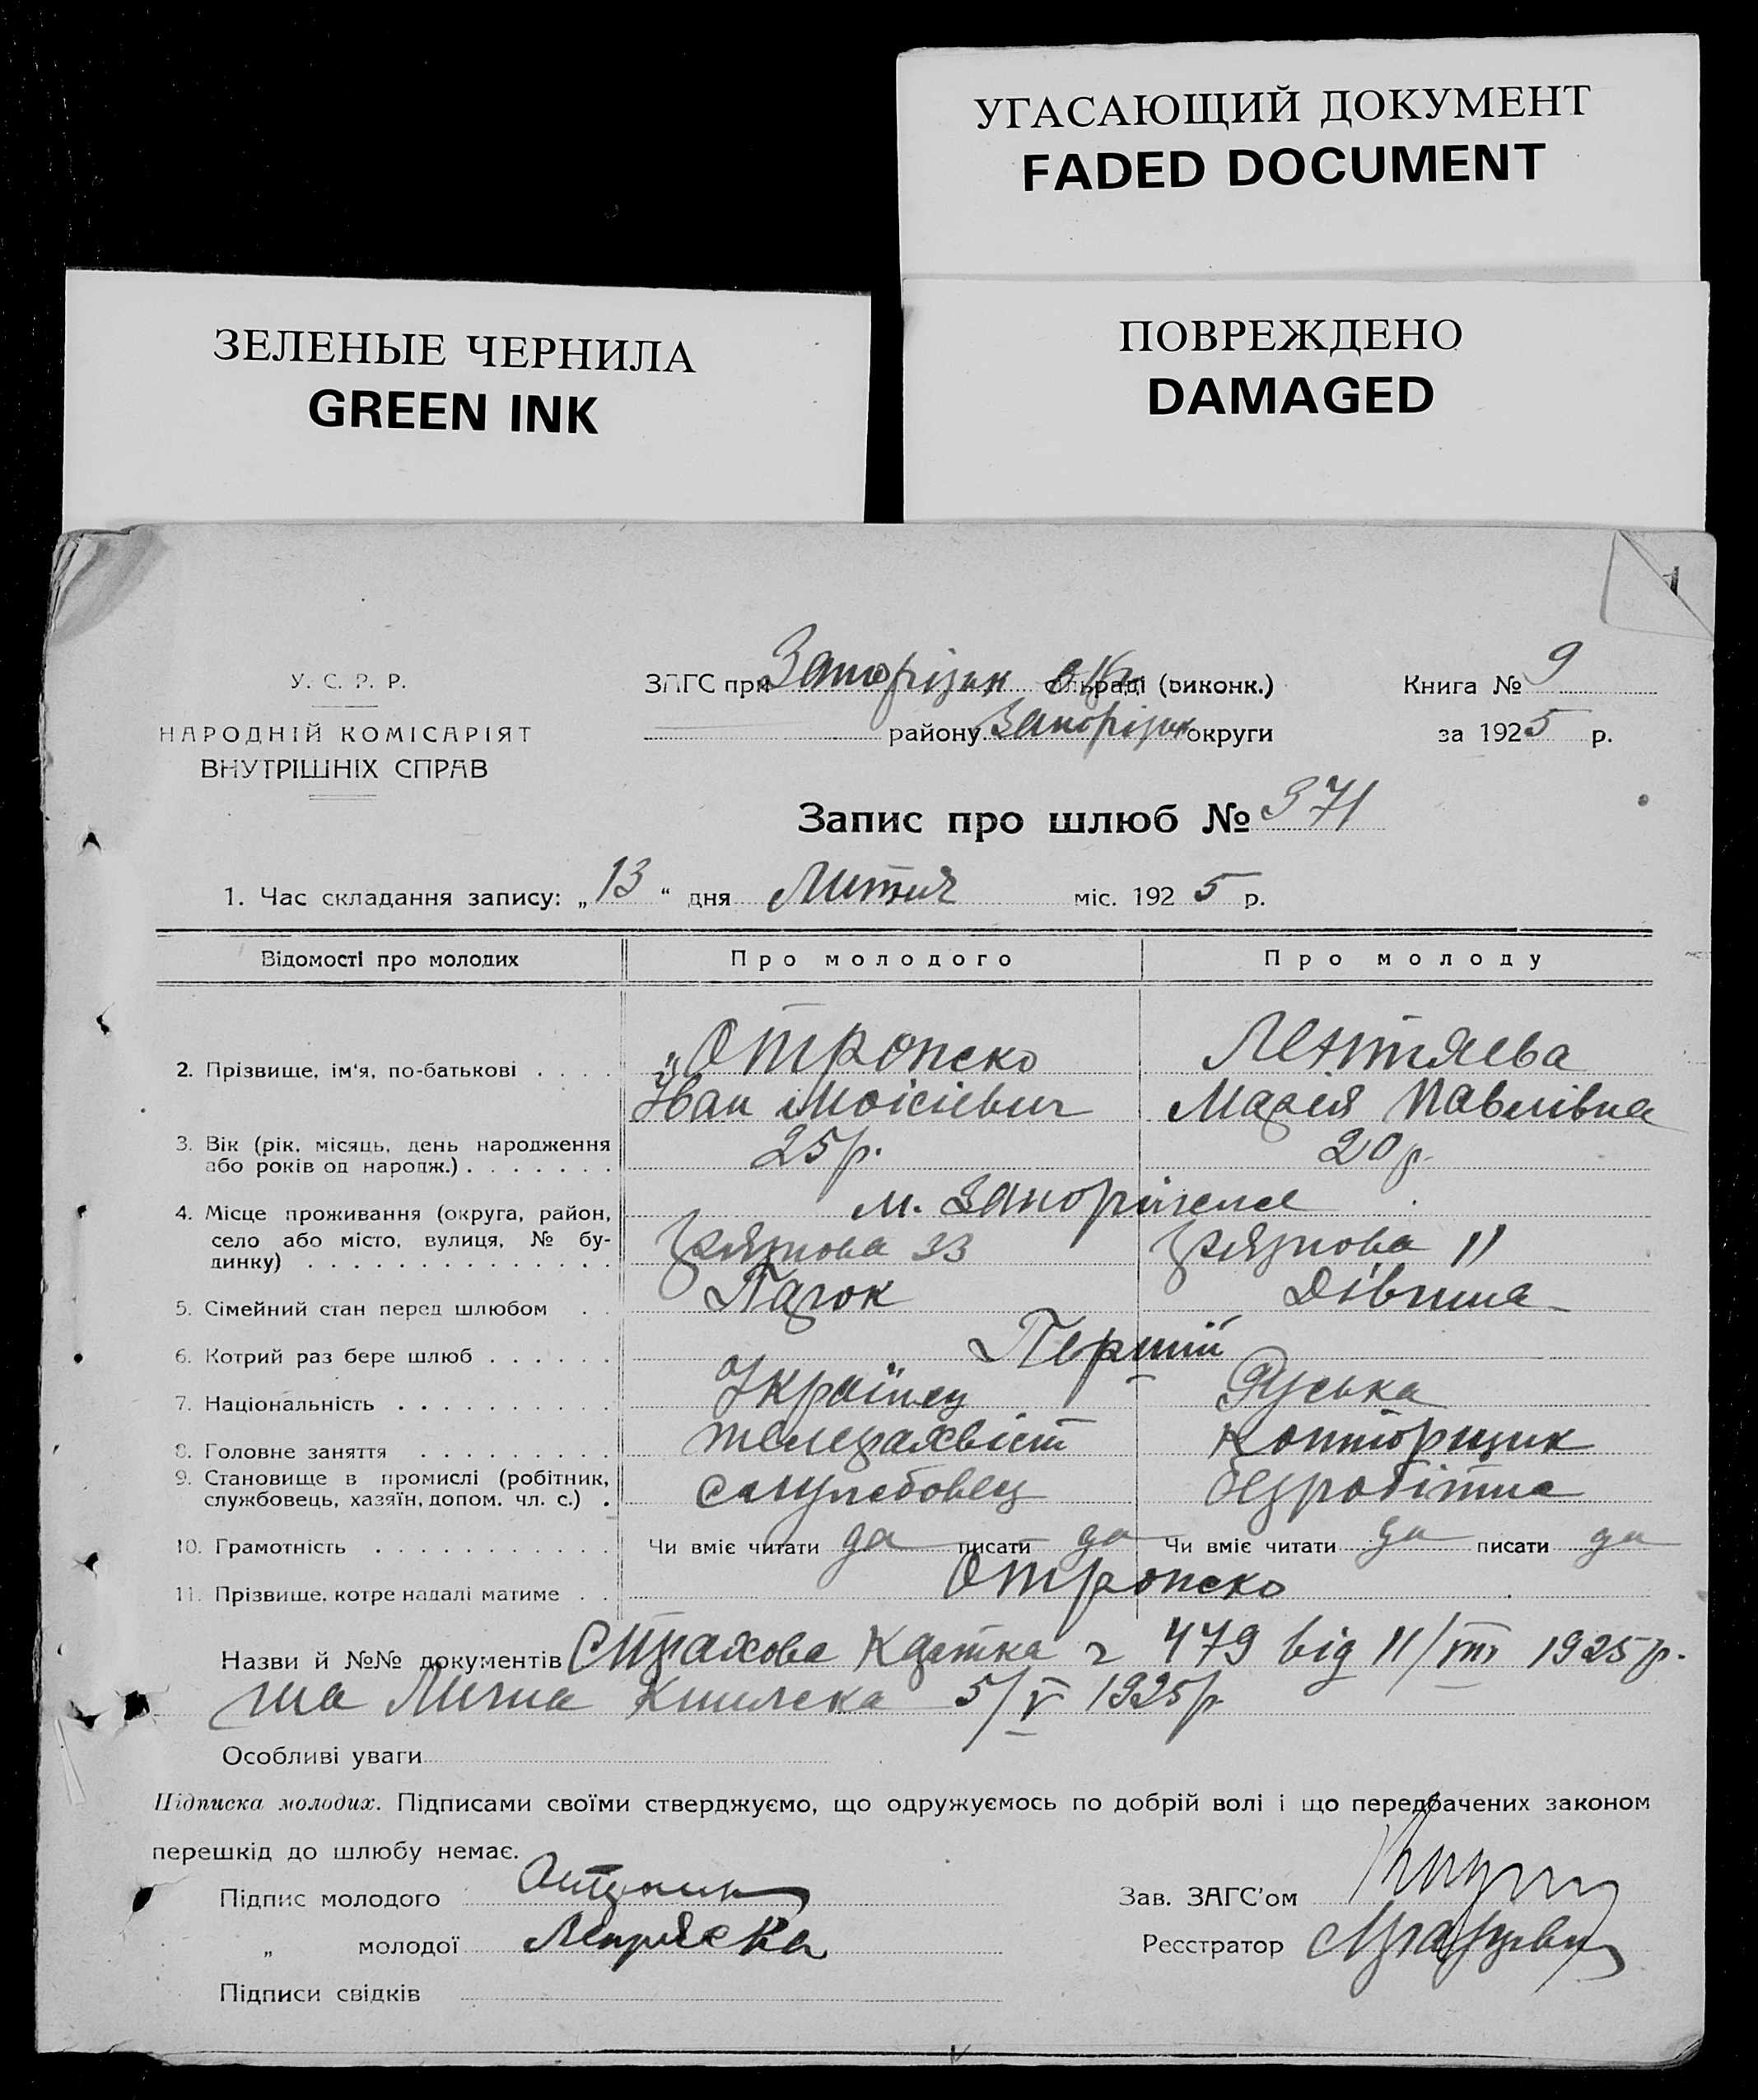 УГАСАЮЩИЙ ДОКУМЕНТ
FADED DOCUMENT
ЗЕЛЕНЫЕ ЧЕРНИЛА
GREEN INK
ПОВРЕЖДЕНО
DAMAGED
1
У. С. Р. Р.
НАРОДНІЙ КОМІСАРІЯТ
ВНУТРІШНІХ СПРАВ
ЗАГС при Запорізьк сільраді (виконк.)
району Запорізьк округи
Книга № 9
за 1925 р.
Запис про шлюб № 371
1. Час складання запису: „13“ дня міс. 1925 р.
Відомості про молодих Про молодого Про молоду
2. Прізвище, ім'я, по-батькові . . . .
Отропско
Іван Моісієвич
Марія Павлівна
3. Вік (рік, місяць, день народження
або років од народж.) . . . . . . .
25 р. 20 р.
4. Місце проживання (округа, район,
село або місто, вулиця, № бу-
динку) . . . . . . . . . . . . . .
м. Запоріжжя
33 11
5. Сімейний стан перед шлюбом . .
Парок Дівчина
6. Котрий раз бере шлюб . . . . . .
Перший
7. Національність . . . . . . . . . .
Українец Руська
8. Головне заняття . . . . . . . . .
телеграхвіст Конторщик
9. Становище в промислі (робітник,
службовець, хазяїн, допом. чл. с.) .
службовец безробітна
10. Грамотність . . . . . . . . . . .
Чи вміє читати да писати да Чи вміє читати да писати да
11. Прізвище, котре надалі матиме . .
Отропско
Назви й №№ документів Страхова Картка ч 479 від 11/VIII 1925 р.
та 5/V 1925 р
Особливі уваги
Підписка молодих. Підписами своїми стверджуємо, що одружуємось по добрій волі і що передбачених законом
перешкід до шлюбу немає.
Підпис молодого
Зав. ЗАГС'ом
„ молодої
Реєстратор
Підписи свідків